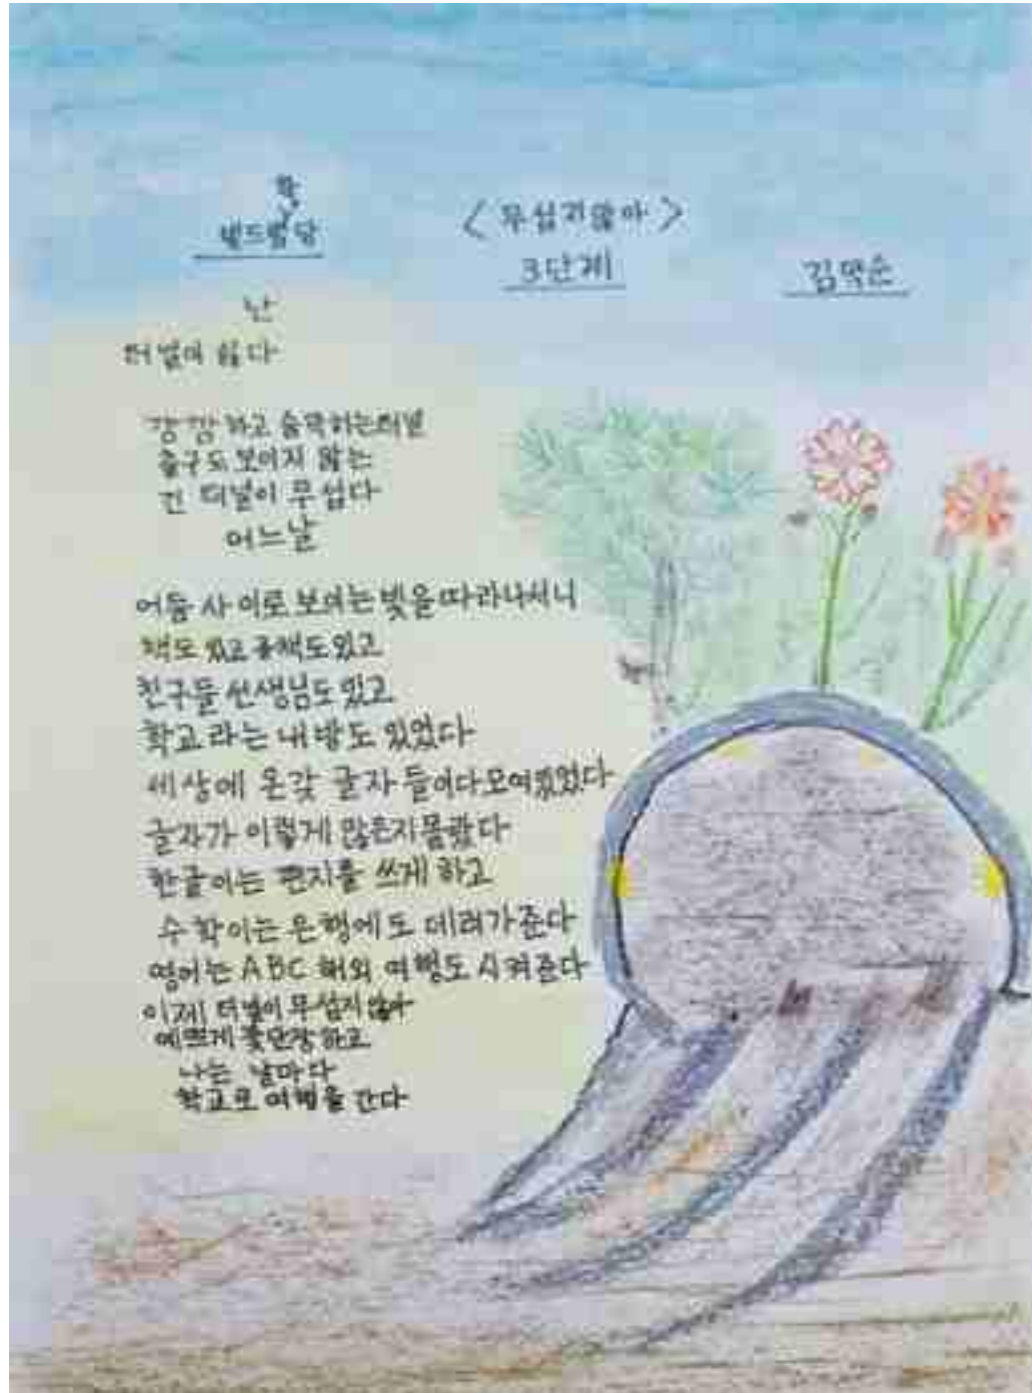 <무섭지않아>
3단계
김막순
난
터널이 싫다
깜깜하고 숨막히는터널
출구도 보이지 않는
긴 터널이 무섭다
어느날
어둠 사이로 보이는빛을따라나서니
책도 있고 공책도있고
친구들 선생님도있고
학교라는 내방도 있었다
세상에 온갖 글자들이다모여있었다
글자가 이렇게 많은지몰랐다
한글이는 편지를 쓰게 하고
수학이는 은행에도 데려가준다
영어는 ABC 해외 여행도 시켜준다
이제 터널이 무섭지않아
예쁘게 꽃단장하고
나는 날마다
학교로 여행을 간다